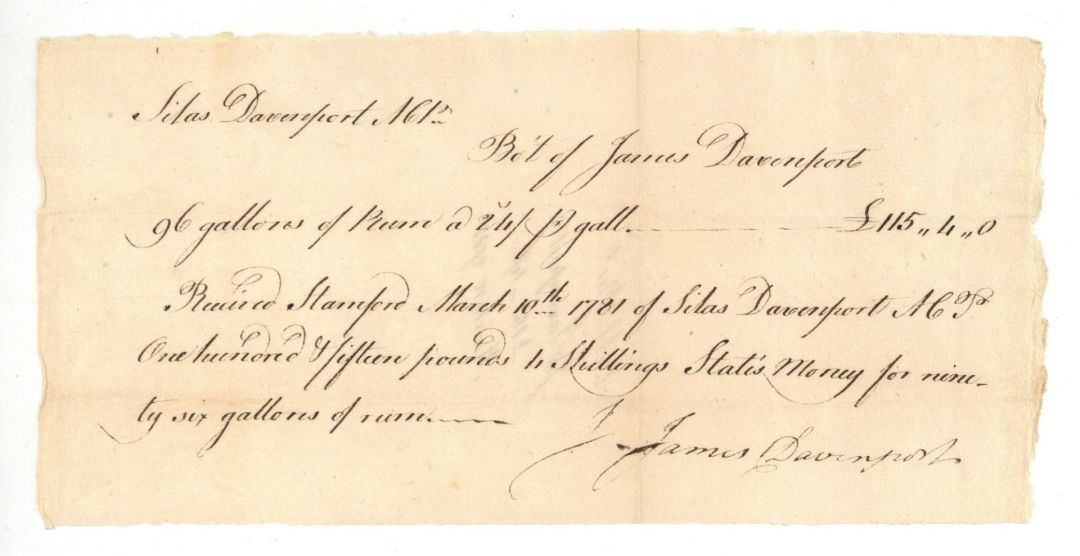 Silas Davenport ACPr
Bo't of James Davenport
96 gallons of Rum @ 24/ ⅌ gall. £115 „ 4 „ 0
Received Stamford March 10th 1781 of Silas Davenport ACPr
One hundred & fifteen pounds 4 Shillings State's Money for nine-
ty six gallons of rum.
James Davenport